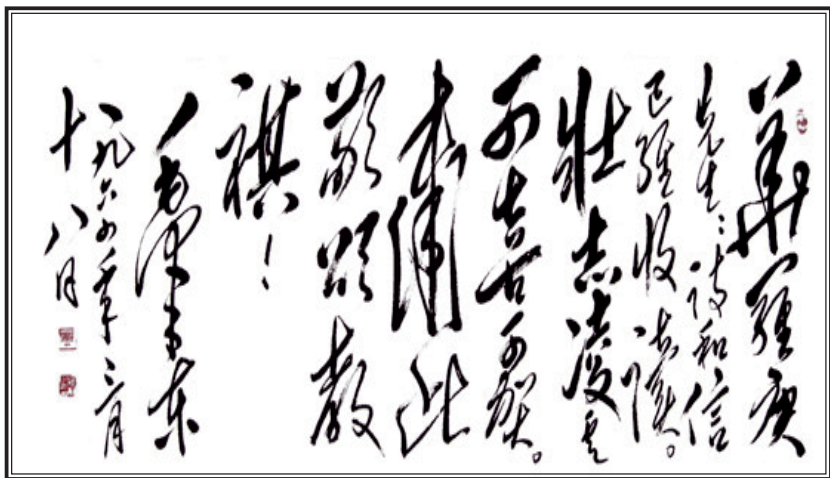 華羅庚
先生：詩和信
已經收讀。
壯志凌雲
可喜可賀。
肅此
敬頌教
祺！
毛澤東
一九六四年三月
十八日